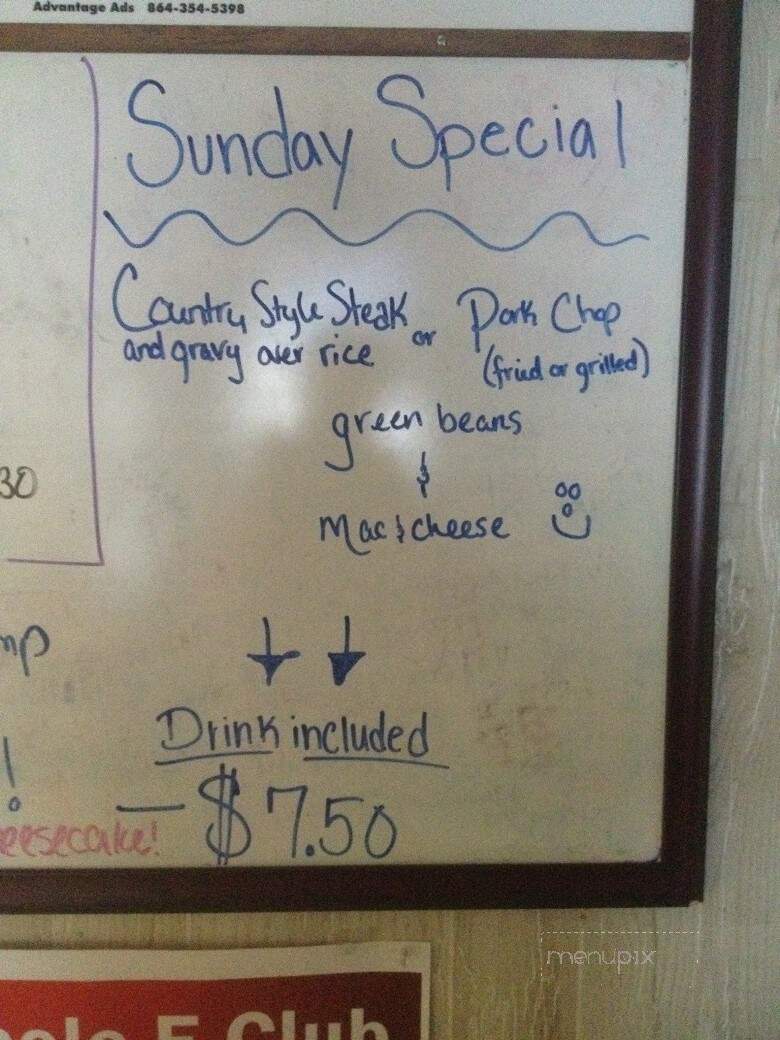 Advantage Ads 864-354-5398
Sunday Special
Country Style Steak
and gravy over rice
or
Pork Chop
(fried or grilled)
green beans
&
Mac & cheese
30
Drink included
- $7.50
!
menupix
E Club